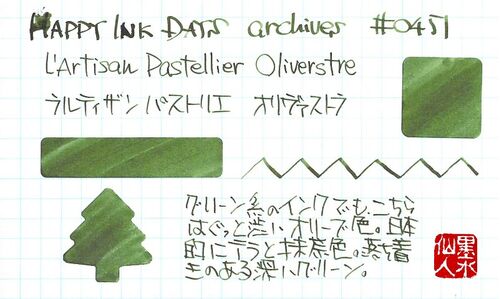 HAPPY INK DAYS archives #0451
L'Artisan Pastellier Oliverstre
ラルティザン パストリエ オリヴァストラ
グリーン系のインクでも、こちら
はぐっと渋いオリーブ色。具体
的に言うと抹茶色。落ち着
きのある深いグリーン。
墨水
仙人